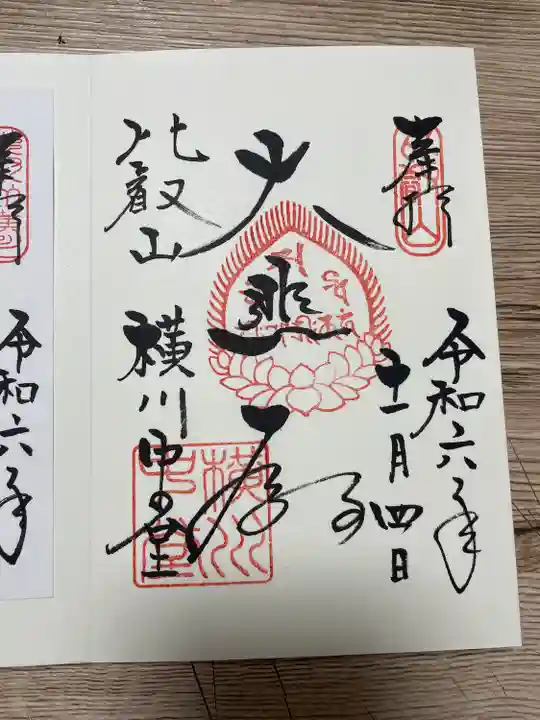 奉拝
令和六年
十一月四日
大悲殿
比叡山
横川中堂
横川中堂
令和六年